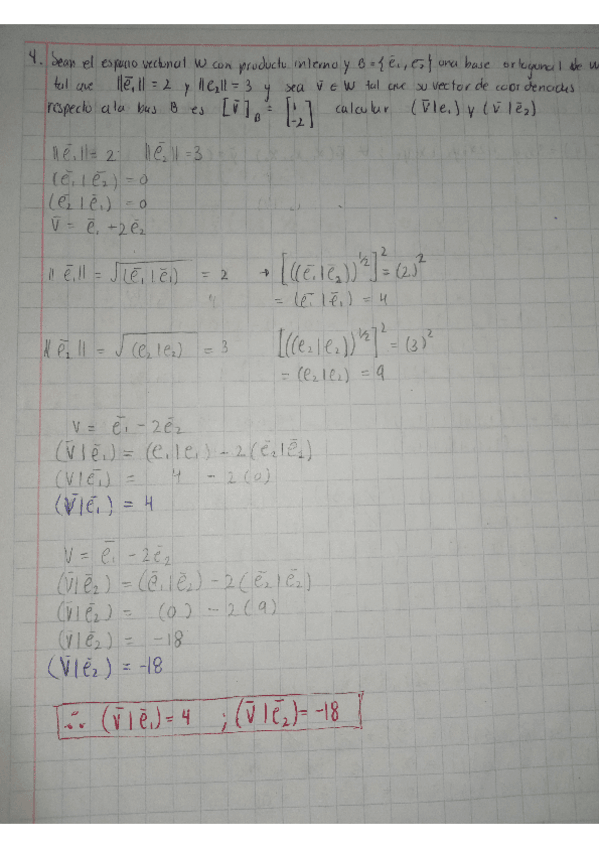 4. Sean el espacio vectorial W con producto interno y B = {ē₁, ē₂} una base ortogonal de W
tal que ||ē₁|| = 2 y ||e₂|| = 3 y sea v̄ ∈ W tal que su vector de coordenadas
respecto a la bas B es [v̄]_B = [1 -2] calcular (v̄|e₁) y (v̄|e₂)
||ē₁|| = 2 ||ē₂|| = 3
(ē₁|ē₂) = 0
(ē₂|ē₁) = 0
v̄ = ē₁ + 2ē₂
||ē₁|| = √(ē₁|ē₁) = 2 → [((ē₁|ē₂))^{1/2}]² = (2)²
= (ē₁|ē₁) = 4
||ē₂|| = √(e₂|e₂) = 3 [((e₂|e₂))^{1/2}]² = (3)²
= (e₂|e₂) = 9
v = ē₁ - 2ē₂
(v̄|ē₁) = (e₁|e₁) - 2(ē₂|ē₂)
(v|ē₁) = 4 - 2(0)
(v̄|ē₁) = 4
v = ē₁ - 2ē₂
(v̄|ē₂) = (ē₁|ē₂) - 2(ē₂|ē₂)
(v̄|ē₂) = (0) - 2(9)
(v̄|ē₂) = -18
(v̄|ē₂) = -18
∴ (v̄|ē₁) = 4 ; (v̄|ē₂) = -18